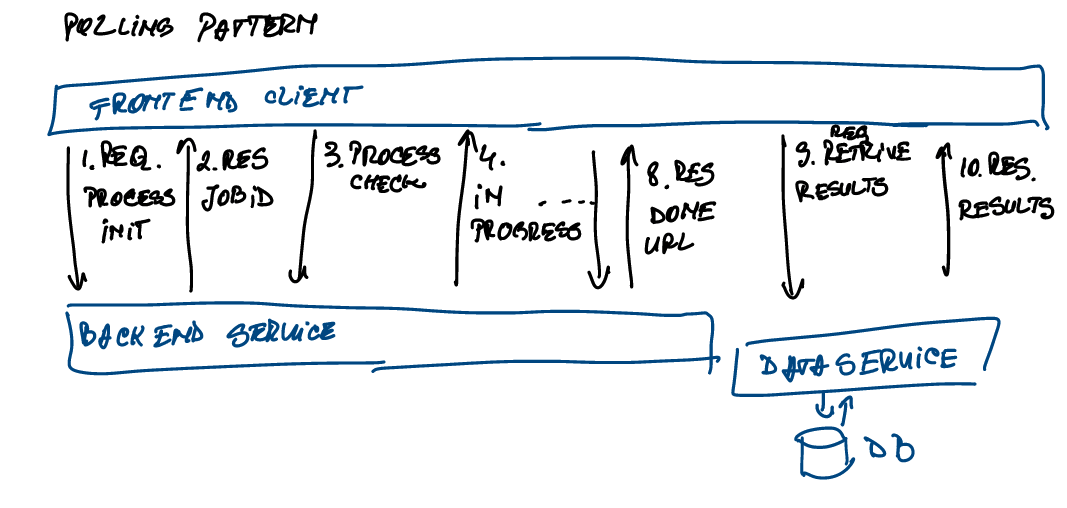 POLLING PATTERN
FRONTEND CLIENT
1. REQ.
PROCESS
INIT
2. RES
JOB ID
3. PROCESS
CHECK
4.
IN
PROGRESS
....
8. RES
DONE
URL
REQ
9. RETRIVE
RESULTS
10. RES.
RESULTS
BACKEND SERVICE
DATA SERVICE
DB